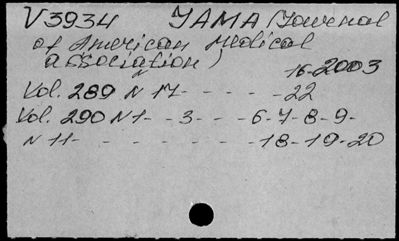 V3934 JAMA (Journal
of American Medical
association)
16-2003
Vol. 289 N 17 - - - - - 22
Vol. 290 N 1 - - 3 - - - 6-7-8-9-
N 11 - - - - - - - - 18-19-20